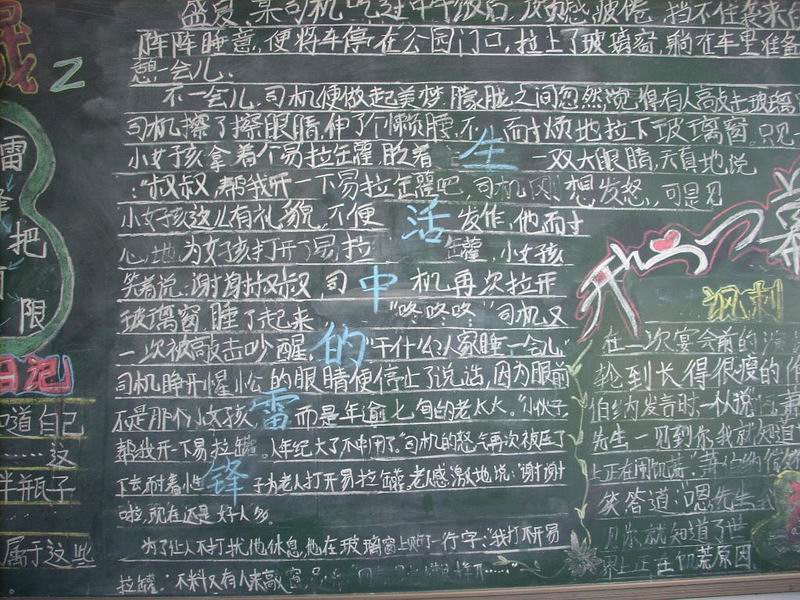 盛夏,某司机吃过中午饭后,顿感疲倦,挡不住袭来
阵阵睡意,便将车停在公园门口,拉上了玻璃窗,躺在车里准备
憩一会儿.
不一会儿,司机便做起美梦.朦胧之间忽然觉得有人敲击玻璃
司机擦了擦眼睛,伸了个懒腰,不 而烦地拉下玻璃窗.只见一
小女孩拿着个易拉缶罐 一双大眼睛,天真地说
:"叔叔,帮我开一下易拉缶罐吧,司机刚想发怒,,可是见
小女孩这儿有礼貌,不便 发作,他耐
心地为女孩打开了易拉 缶罐,小女孩
笑着说:谢谢叔叔,司 机再次拉开
玻璃窗睡了起来 "咚咚咚"司机又
一次被敲击吵醒, "干什么,人家睡一会儿"
司机睁开惺忪的眼睛便停止了说话,因为眼前
不是那个小女孩 而是年逾七旬的老太太。"小伙子,
帮我开一下易拉罐。人年纪大了不中用了"司机的怒气再次被压了
下去,耐着小性 子为老人打开易拉罐,老感激地说:"谢谢
啦,现在还是好人多。
为了让人不打扰他休息,他在玻璃窗上贴了一行字:"我打不开易
拉罐."不料又有人来敲窗
生
活
中
的
雷
锋
星
2
雷
把
限
日记
知道自己
……这
半瓶子
属于这些
开心一幕
讽刺
在一次宴会前的
轮到长得很瘦的
伯纳发言时,一
先生一见到你,我就知道
上正在闹饥荒."萧伯纳
笑答道:"嗯,先生
见你就知道了世
界上正在饥荒原因